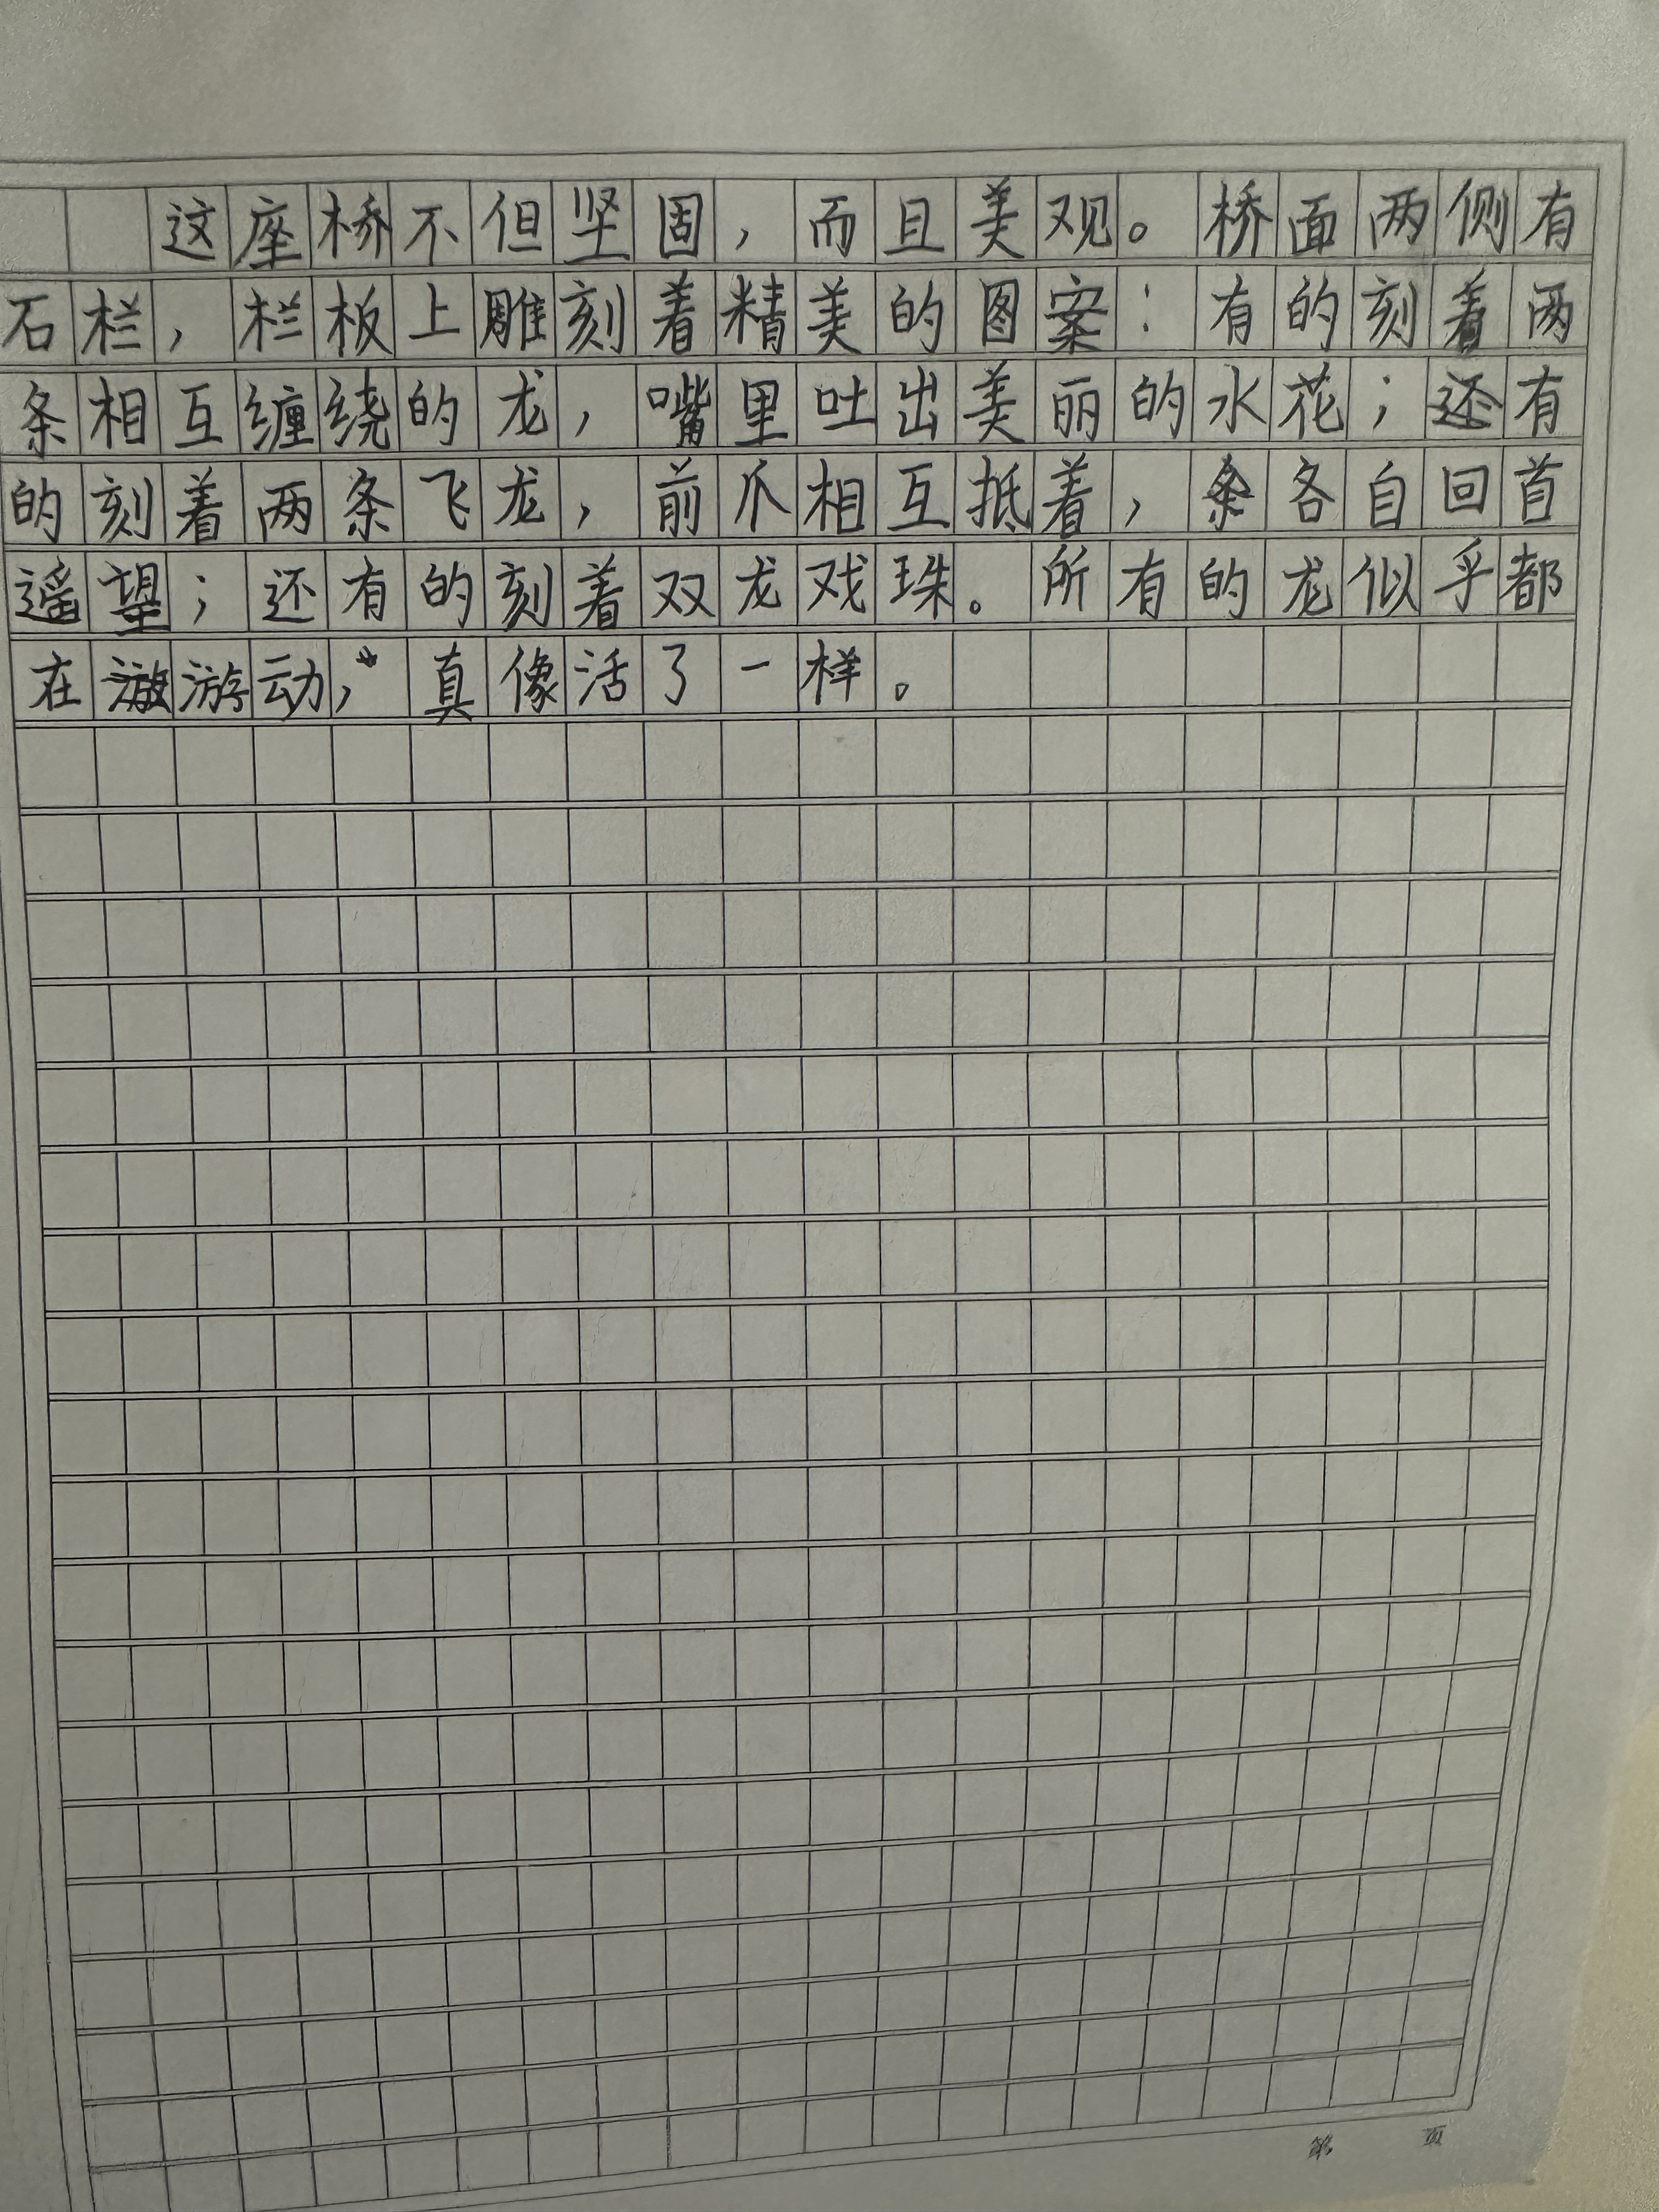 这座桥不但坚固，而且美观。桥面两侧有
石栏，栏板上雕刻着精美的图案：有的刻着两
条相互缠绕的龙，嘴里吐出美丽的水花；还有
的刻着两条飞龙，前爪相互抵着，各自回首
遥望；还有的刻着双龙戏珠。所有的龙似乎都
在游动，真像活了一样。
第 页